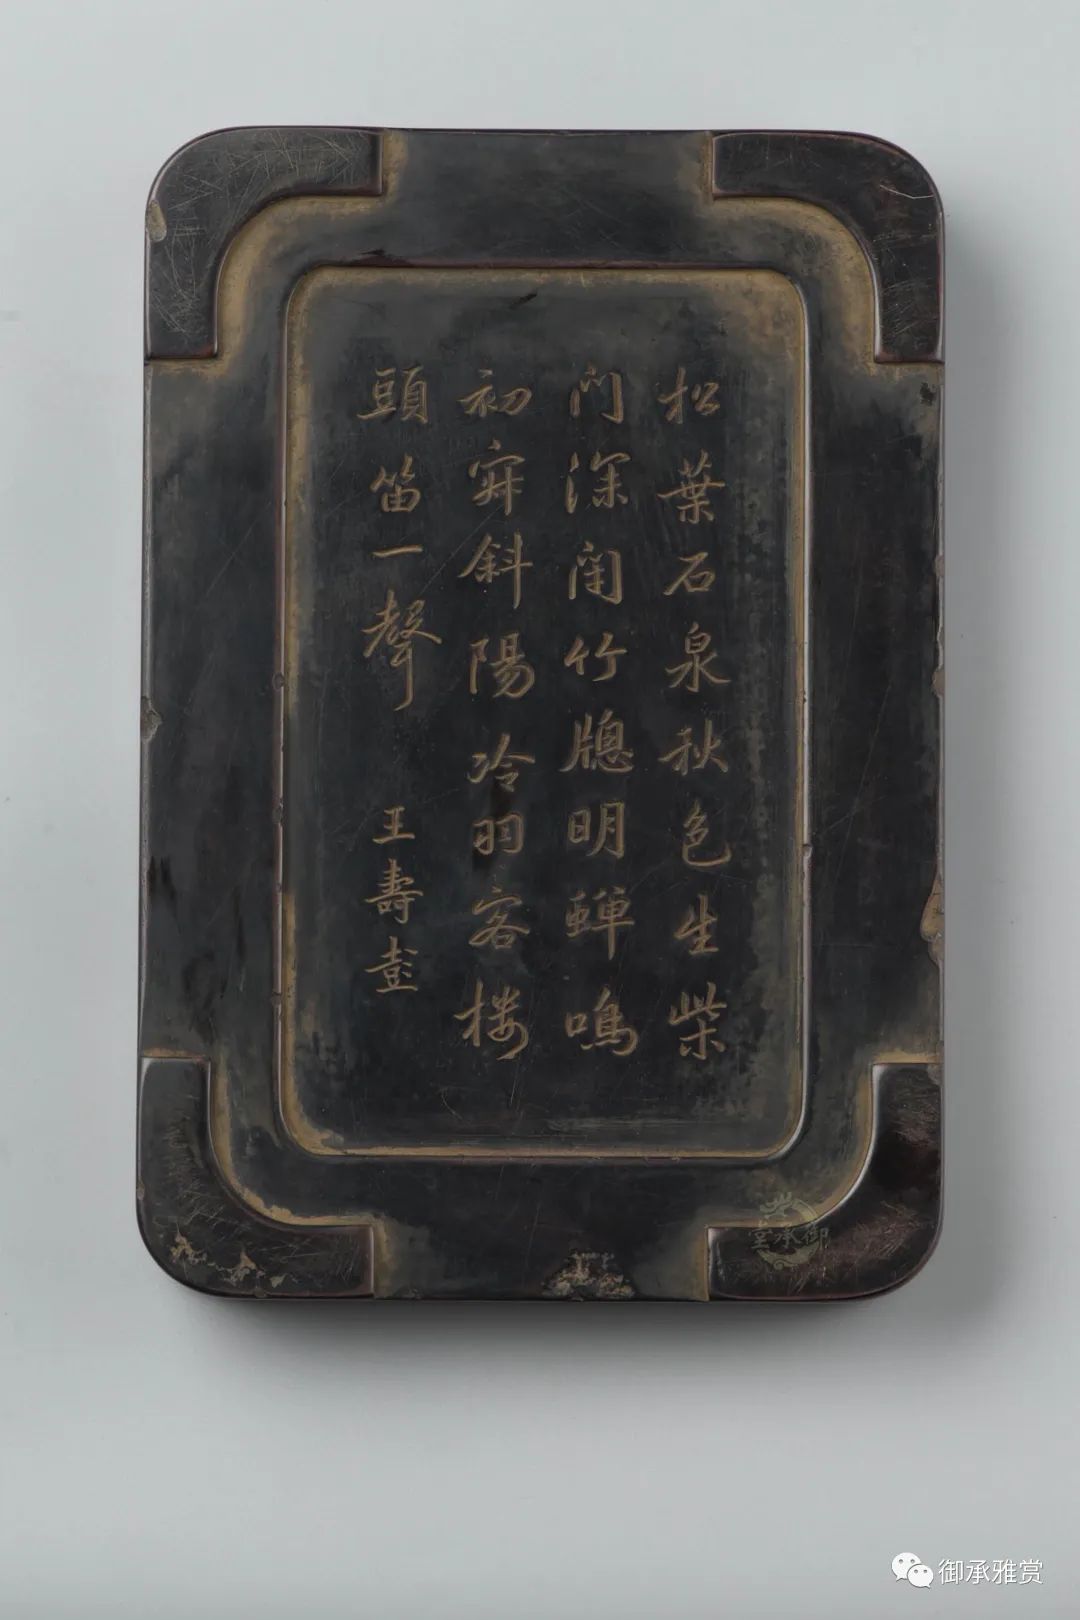 松葉石泉秋色生柴
门深闭竹牕明蟬鳴
初斜陽冷羽客楼
頭笛一聲
王壽彭
御承堂
御承雅赏